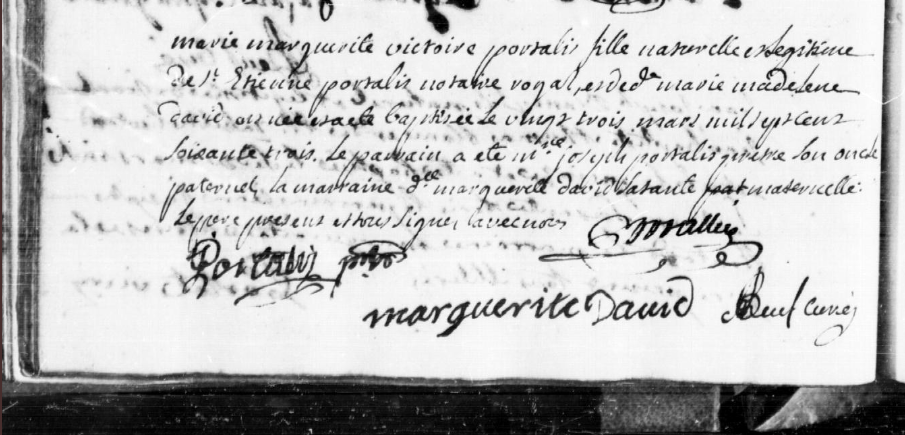 marie marguerite victoire portalis fille naturelle et legitime
de Sr. Etienne portalis notaire royal, et de de marie madelene
david est née et a ete baptisée le vingt trois mars mil sept cent
soixante trois. le parrain a ete mre joseph portalis pretre son oncle
paternel, la marraine dlle marguerite david sa tante maternelle.
le pere present et tous signes avec nous
Portalis
Portalis ptre
marguerite David curé